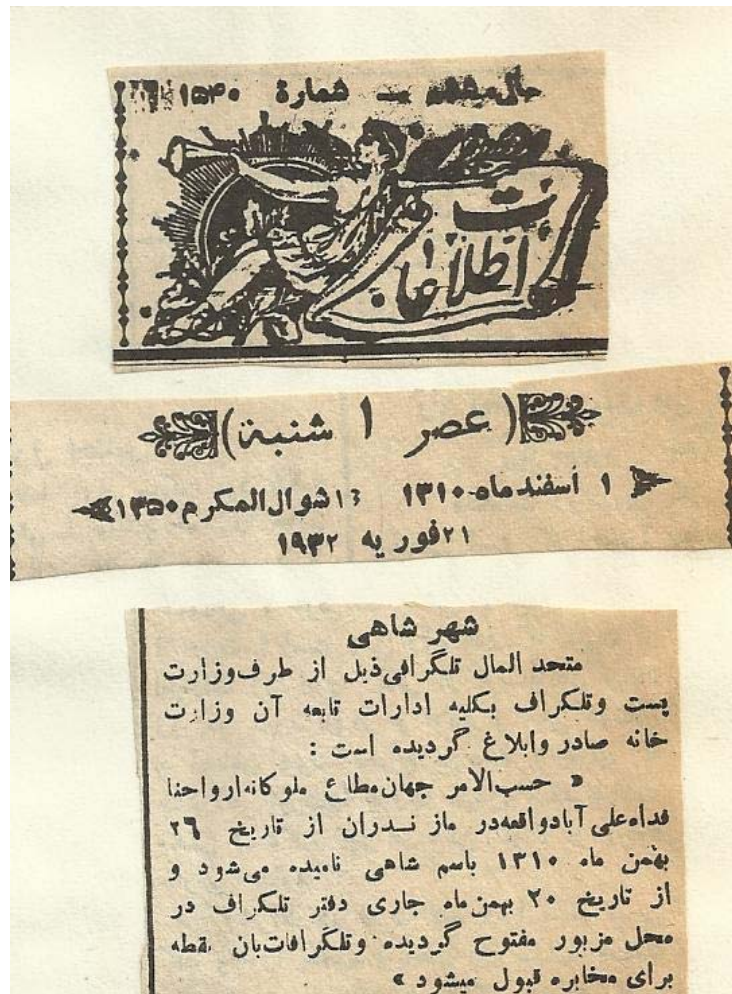 سال ششم — شمارة ۱۵۴۰
اطلاعات
(عصر ۱ شنبة)
۱ اسفند ماه ۱۳۱۰ ۱۳ شوال المکرم ۱۳۵۰
۲۱ فوریه ۱۹۳۲
شهر شاهی
متحد المال تلگرافی ذیل از طرف وزارت
پست وتلگراف بکلیه ادارات تابعه آن وزارت
خانه صادر وابلاغ گردیده است :
« حسب‌الامر جهان‌مطاع ملوکانه ارواحنا
فداه علی آباد واقعه در مازندران از تاریخ ۲۶
بهمن ماه ۱۳۱۰ باسم شاهی نامیده می‌شود و
از تاریخ ۲۰ بهمن ماه جاری دفتر تلگراف در
محل مزبور مفتوح گردیده وتلگرافات بان نقطه
برای مخابره قبول میشود »